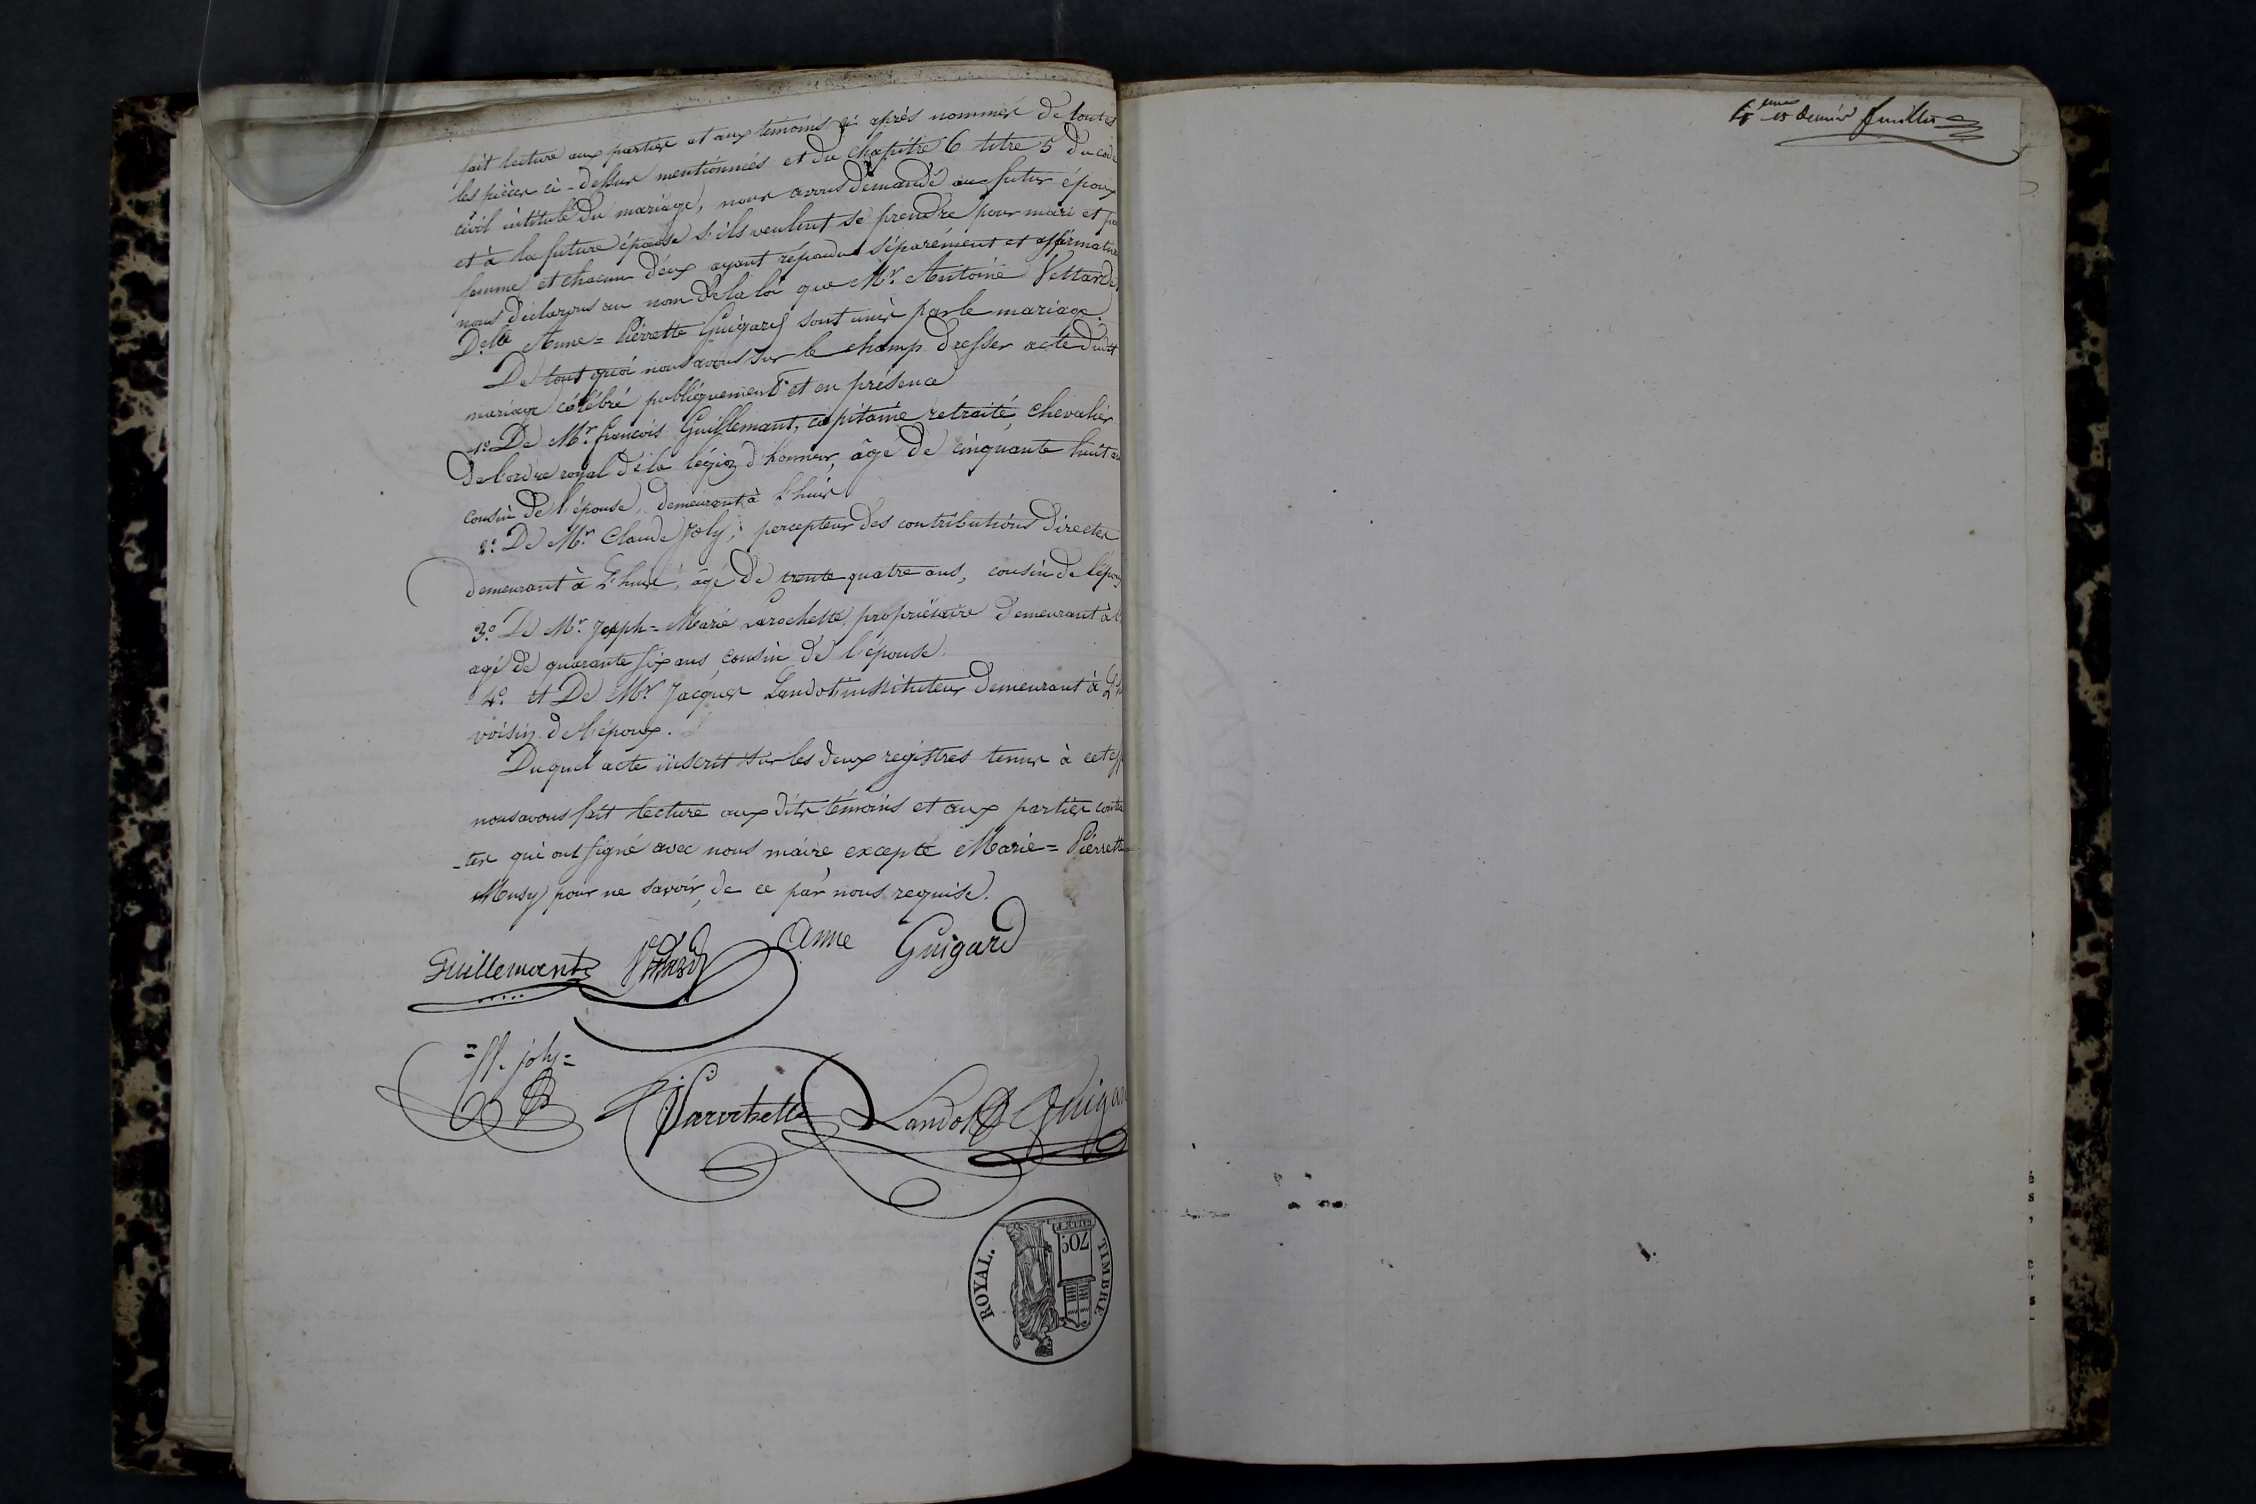 fait lecture aux parties et aux témoins ci après nommés de toutes
les pièces ci-dessus mentionnées et du chapitre 6 titre 5 du code
civil intitulé du mariage, nous avons demandé au futur époux
et à la future épouse s'ils veulent se prendre pour mari et po
femme, et chacun d'eux ayant répondu séparément et affirmative
nous déclarons au nom de la loi que Mr. Antoine Vettard et
Delle Anne=Pierrette Guigard sont unis par le mariage.
De tout quoi nous avons sur le champ dresser acte dudit
mariage célébré publiquement et en présence
1o. De Mr. françois Guillemant, capitaine retraité, chevalier
de l'ordre royal de la légion d'honneur, âgé de cinquante huit an
cousin de l'épouse, demeurant à Lhuis
2o. De Mr. Claude Joly, percepteur des contributions directes
demeurant à Lhuis, âgé de trente quatre ans, cousin de l'épou
3o. De Mr. Joseph=Marie Larochette, propriétaire demeurant à L
agé de quarante six ans, cousin de l'épouse.
4o. et De Mr. Jacques Landot instituteur demeurant à Lh
voisin de l'époux.
Duquel acte inscrit sur les deux registres tenus à cet eff
nous avons fait lecture aux dits témoins et aux parties contra
-tes qui ont signé avec nous maire excepté Marie=Pierrette
Musy pour ne savoir, de ce par nous requise.
Guillemant Vettard Anne Guigard
joly
Larochette Landot Guigar
TIMBRE ROYAL.
70c
et dernier feuillet